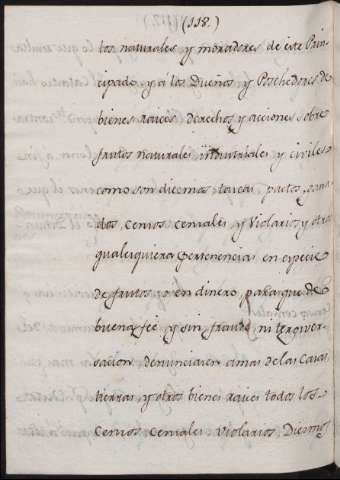 (118.)
los naturales y moradores de este Prin-
cipado y a los Dueños y Posehedores de
bienes raices derechos y acciones sobre
frutos naturales industriales y civiles
como son diezmos tascas partos,
dos, censos censales y Violarios y otra
qualesquiera pertenencias en especie
de frutos, o en dinero, para que de
buena fee y sin fraude, ni tergiver-
sacion denunciasen amas de las Casas
tierras, y otros bienes raices todos los
Censos Censales Violarios, Diezmos